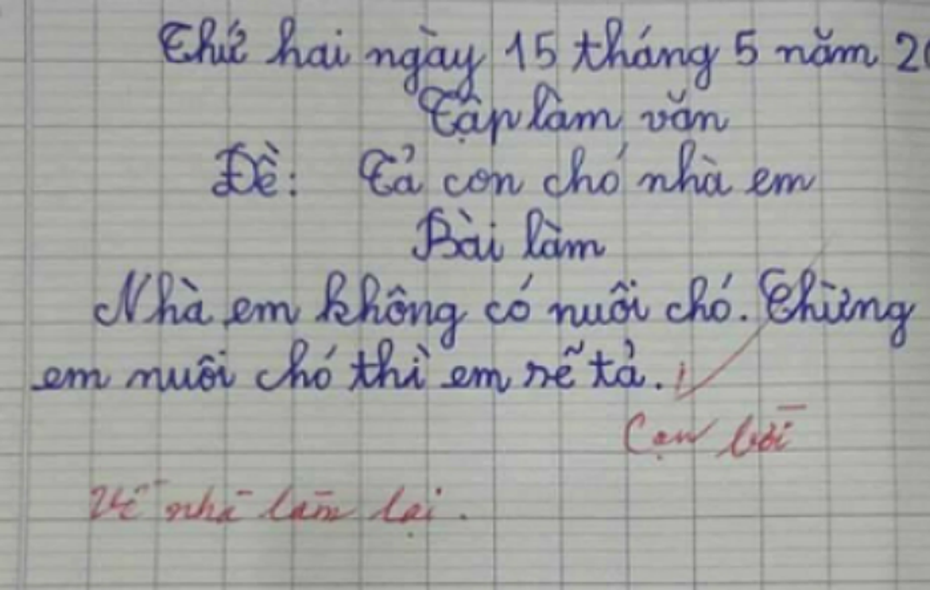 Thứ hai ngày 15 tháng 5 năm 20
Tập làm văn
Đề: Tả con chó nhà em
Bài làm
Nhà em không có nuôi chó. Chừng
em nuôi chó thì em rẽ tả.
Cạn lời
Về nhà làm lại.